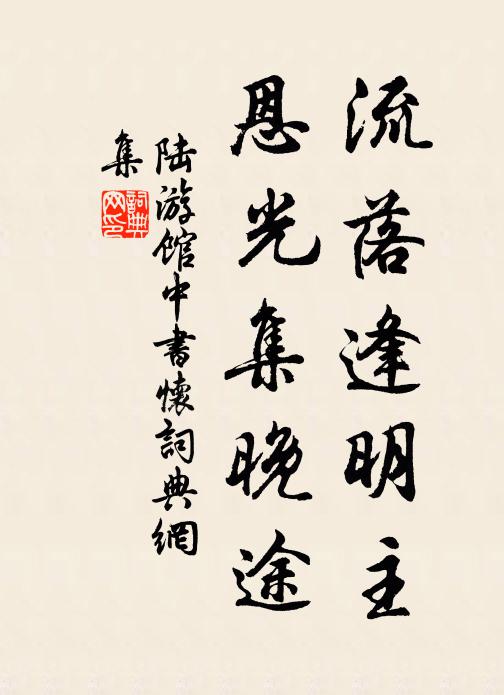 流落逢明主
恩光集晚途
陆游馆中書懷詞典網
集
詞典
网印